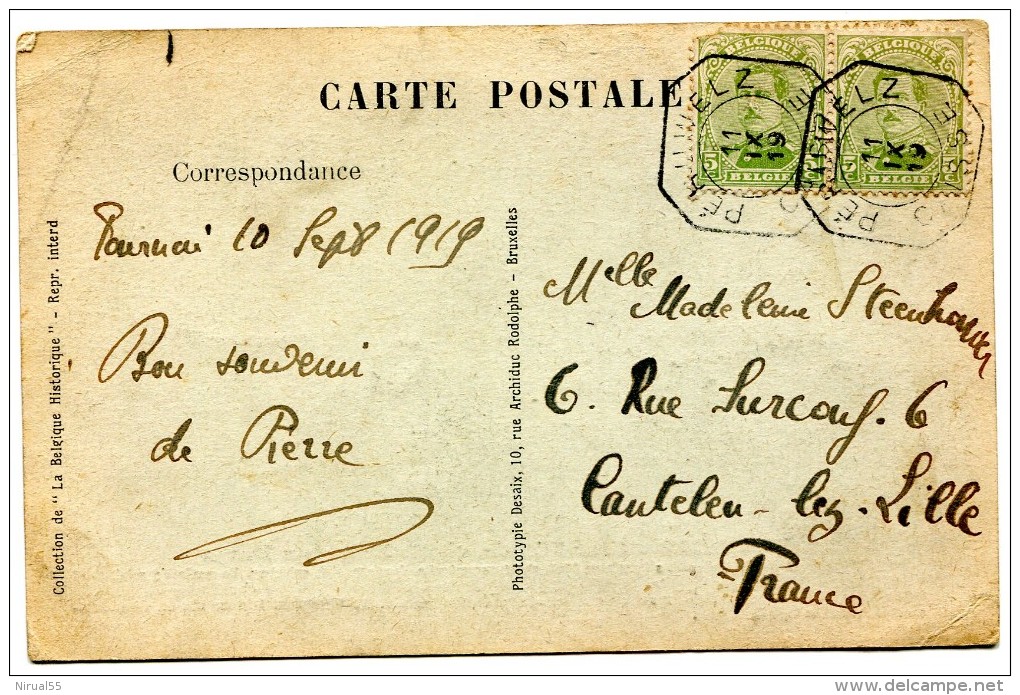 CARTE POSTALE
BELGIQUE
5
BELGIE
BELGIQUE
5 C
BELGIE
PÉRUWELZ
11
IX
19
PÉRUWELZ
11
IX
19
Correspondance
Tournai 10 Sept 1919
Bon souvenir
de Pierre
Melle
Madeleine
6. Rue Surcouf. 6
Canteleu-lez-Lille
France
Collection de "La Belgique Historique" - Repr. interd
Phototypie Desaix, 10, rue Archiduc Rodolphe - Bruxelles
Nirual55
delcampe.net